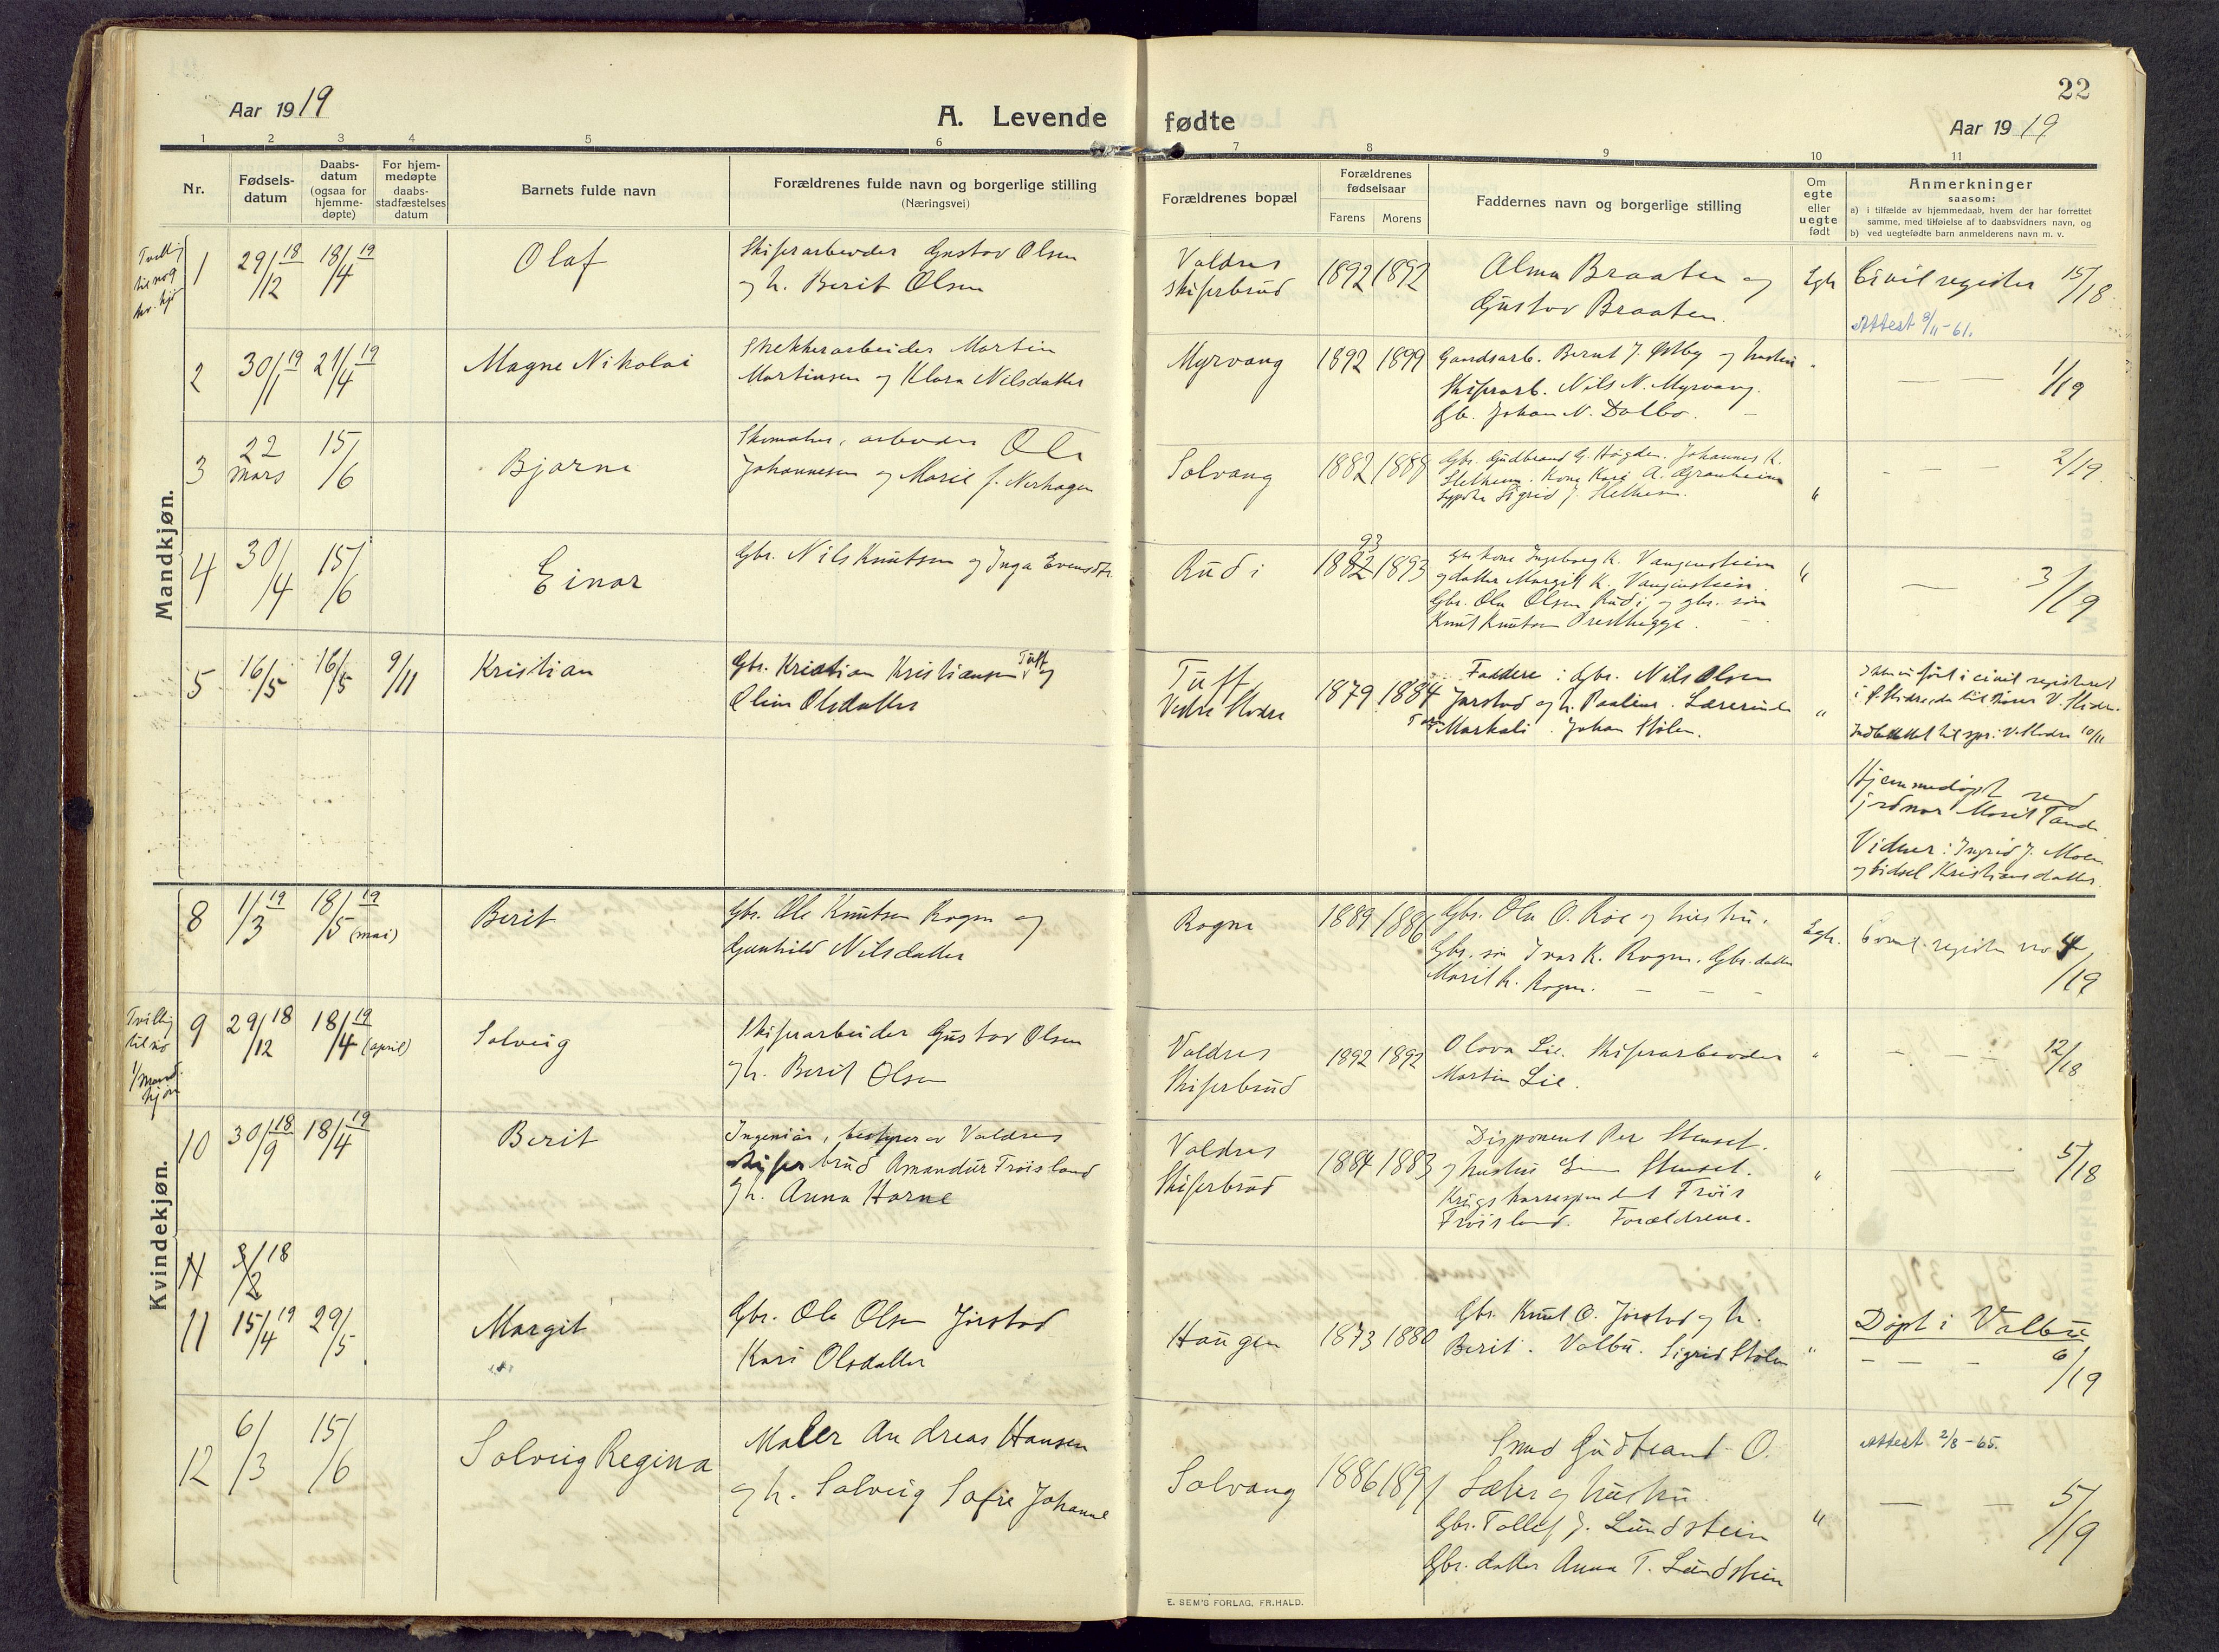 22
Aar 1919
A. Levende
fødte
Aar 1919
1 2 3 4 5 6 7 8 9 10 11
Nr.
Fødsels-
datum
Daabs-
datum
(ogsaa for
hjemme-
døpte)
For hjem-
medøpte
daabs-
stadfæstelses
datum
Barnets fulde navn
Forældrenes fulde navn og borgerlige stilling
(Næringsvei)
Forældrenes bopæl
Forældrenes
fødselsaar
Farens Morens
Faddernes navn og borgerlige stilling
Om
egte
eller
uegte
født
Anmerkninger
saasom:
a) i tilfælde av hjemmedaab, hvem der har forrettet
samme, med tilføielse af to daabsvidners navn, og
b) ved uegtefødte barn anmelderens navn m. v.
Mandkjøn.
Tvillig
til no 9
kv. kjø
1
29/12 18
18/4 19
Olaf
Skiferarbeider Gustav Olsen
og h. Berit Olsen
Valdres
skiferbrud
1892 1892
Alma Braaten og
Gustav Braaten.
Egte
Civilregister 15/18
Attest 8/11-61.
2
30/1 19
21/4 19
Magne Nikolai
Martin
Martinsen og Klara Nilsdatter
Myrvang
1892 1899
Gaardsarb. Bernt J. Østby og hustru
Skiferarb. Nils N. Myrvang.
Gbr. Johan N. Dalbo. -
"
— — 1/19
3
22
mars
15/6
Bjarne
Skomaker, arbeider Ole
Johannesen og Marie f. Nerhagen
Solvang
1882 1889
Gbr. Gudbrand G. Høgden. Johannes K.
Stelheim. Kone Kari A. Granheim
Sigrid J. Stelheim.
"
— — — 2/19
4
30/4
15/6
Einar
Gbr. Nils Knutsen og Inga Evensdtr.
Rudi
93
1882 1893
Gbr. kone Ingeborg K. Vangensteen
og datter Margit K. Vangensteen.
Gbr. Ola Olsen Rudi og gbr. søn
Knut Knutsen Presthegge.
"
— 3/19
5
16/5
16/5
9/11
Kristian
Gbr. Kristian Kristiansen Tuff og
Oline Olsdatter
Tuff
Vestre Slidre
1879 1884
Faddere: Gbr. Nils Olsen
Jarstad og h. Pauline. Lærerinde
Markali. Johan Stølen.
"
Ikke indført i civil registeret
V. Slidre.
V. Slidre 10/11
Hjemmedøpt ved
jordmor Marit Tande
Vidner: Ingrid J. Moen
og Sidsel Kristiansdatter.
Kvindekjøn.
8
1/3 19
18/5 19 (mai)
Berit
Gbr. Ole Knutsen Rogne og
Gunhild Nilsdatter
Rogne
1889 1886
Gbr. Ola O. Roe og hustru.
Gbr. søn Ivar K. Rogne. Gbr. datter
Marit K. Rogne. — — —
Egte.
Civil register no 4/19
Tvillig
til no
1/mand-
kjøn
9
29/12 18
18/4 19 (april)
Solveig
Skiferarbeider Gustav Olsen
og h. Berit Olsen
Valdres
Skiferbrud
1892 1892
Olava Lie. Skiferarbeider
Martin Lie.
"
— — — 12/18
10
30/9 18
18/4 19
Berit
Ingeniør, bestyrer av Valdres
skiferbrud Amandus Frøisland
og h. Anna Horne
Valdres
Skiferbrud
1884 1883
Disponent Per Stenset.
og hustru Stenset.
Krigskorrespondent Frøis
Frøisland. Forældrene.
"
— — 5/18
11
3/2 18
11
15/4 19
29/5
Margit
Gbr. Ole Olsen Jørstad
Kari Olsdatter
Haugen
1873 1880
Gbr. Knut O. Jørstad og h.
Berit. Volbu. Sigrid Stølen
"
Døpt i Volbu
— — — 6/19
12
6/3
15/6
Solveig Regina
Maler Andreas Hansen
og h. Solveig Sofie Johanne
Solvang
1886 1891
Smed Gudbrand O.
Sæter og hustru.
Gbr. Tollef J. Lundstein
Gbr. datter Anna T. Lundstein
"
Attest 2/8-65.
— — 5/19
E. SEM'S FORLAG, FR.HALD.